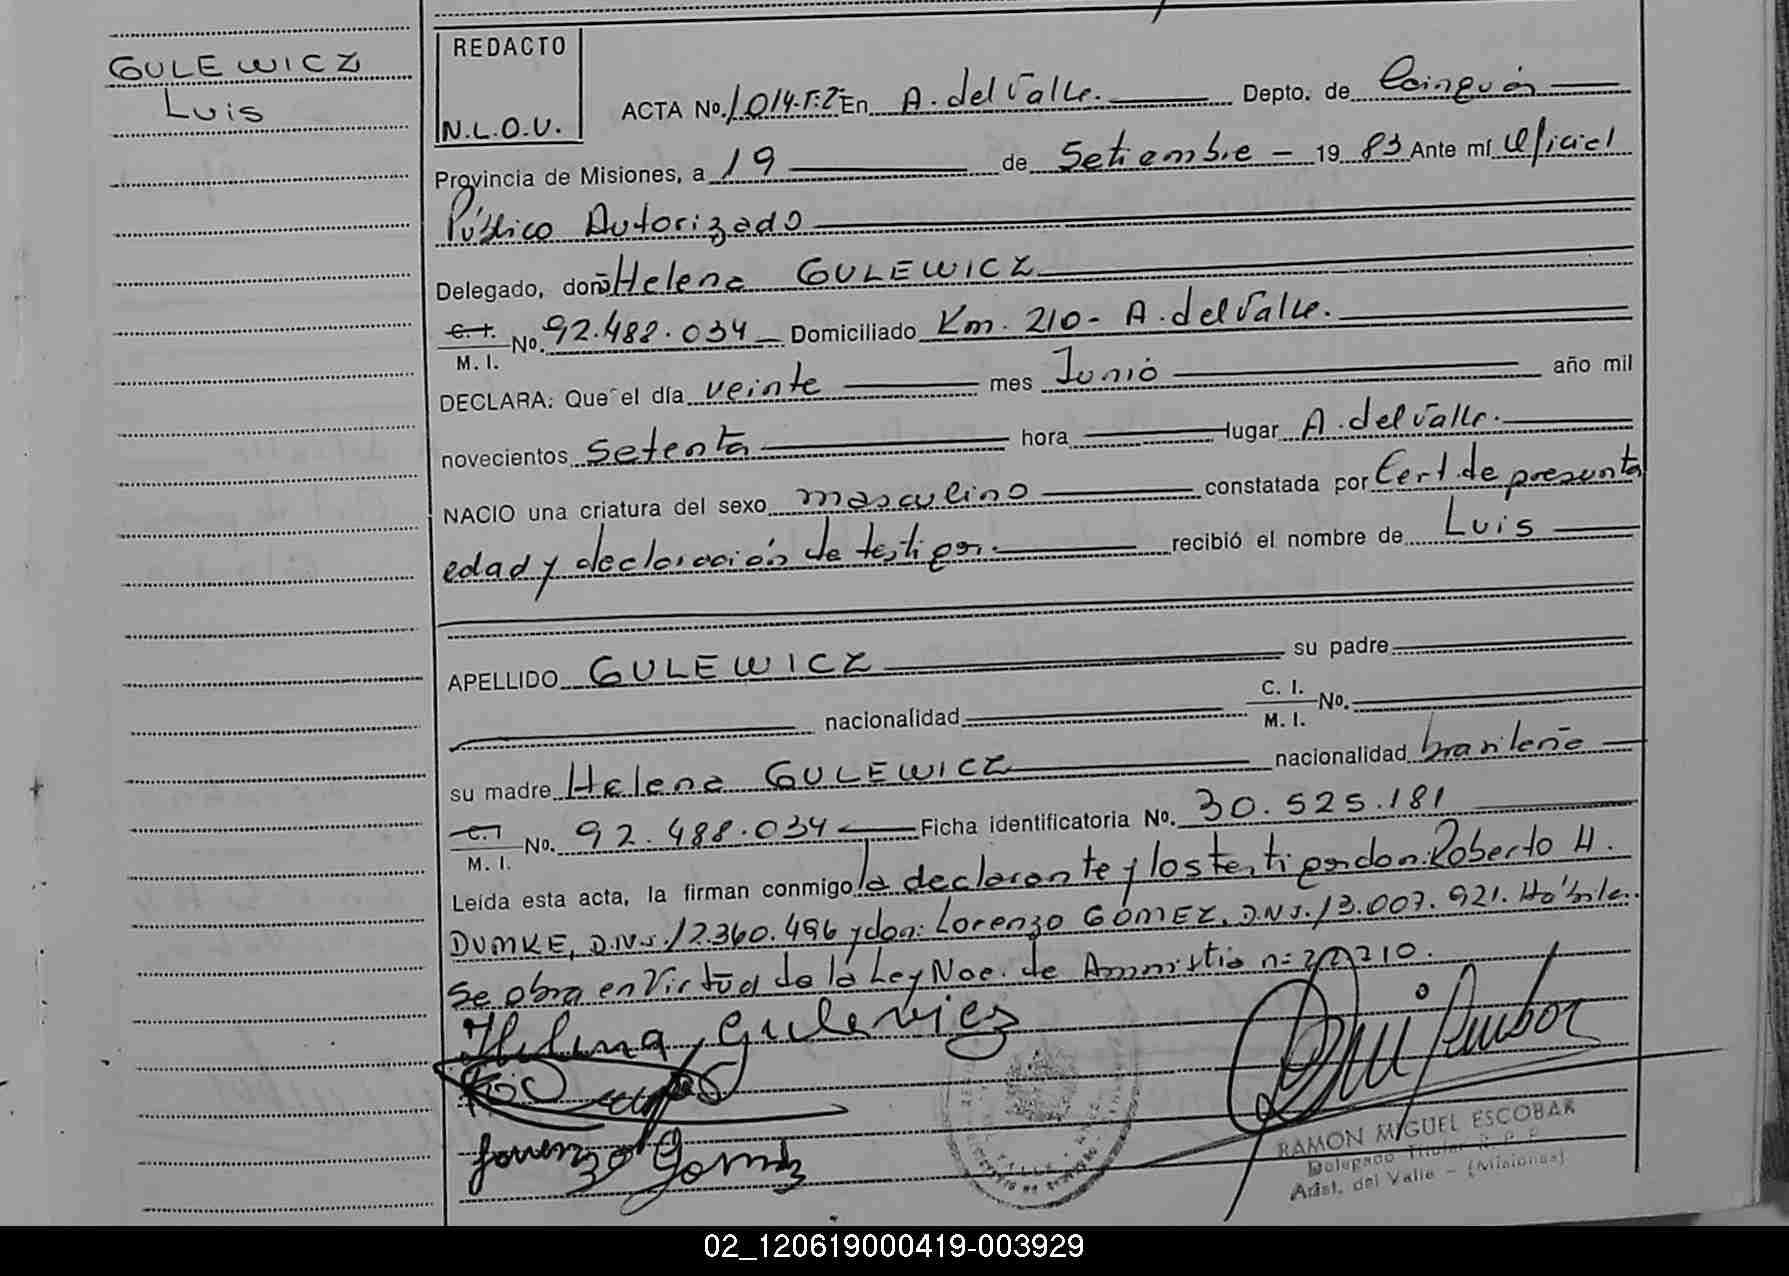 GULEWICZ
Luis
REDACTO
N.L.O.V.
ACTA No. 1014-T:2º En A. del Valle. Depto. de Cainguás
Provincia de Misiones, a 19 de Setiembre - 19 83 Ante mí Oficial
Público Autorizado
Delegado, doña Helena GULEWICZ
C. I. M. I. No. 92.488.034 Domiciliado Km. 210 - A. del Valle.
DECLARA: Que el día veinte mes Junio año mil
novecientos setenta hora lugar A. del Valle.
NACIO una criatura del sexo masculino constatada por Cert. de presunta
edad y declaración de testigos. recibió el nombre de Luis
APELLIDO GULEWICZ su padre
nacionalidad C. I. M. I. No.
su madre Helena GULEWICZ nacionalidad brasileña
C. I. M. I. No. 92.488.034 Ficha identificatoria No. 30.525.181
Leída esta acta, la firman conmigo la declarante y los testigos don: Roberto H.
DUMKE, D.N.I. 12.360.496 y don: Lorenzo GOMEZ, D.N.I. 13.007.921. Hábiles.
Se obra en Virtud de la Ley Nac. de Amnistia nº 22210.
Helena Gulewicz
Lorenzo Gomez
RAMON MIGUEL ESCOBAR
Delegado Titular R.P.P.
Arist. del Valle - (Misiones)
02_120619000419-003929